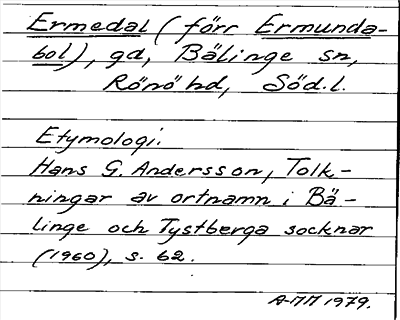 Ermedal (förr Ermunda-
bol), gd, Bälinge sn,
Rönö hd, Söd.l.
Etymologi.
Hans G. Andersson, Tolk-
ningar av ortnamn i Bä-
linge och Tystberga socknar
(1960), s. 62.
A-MM 1979.